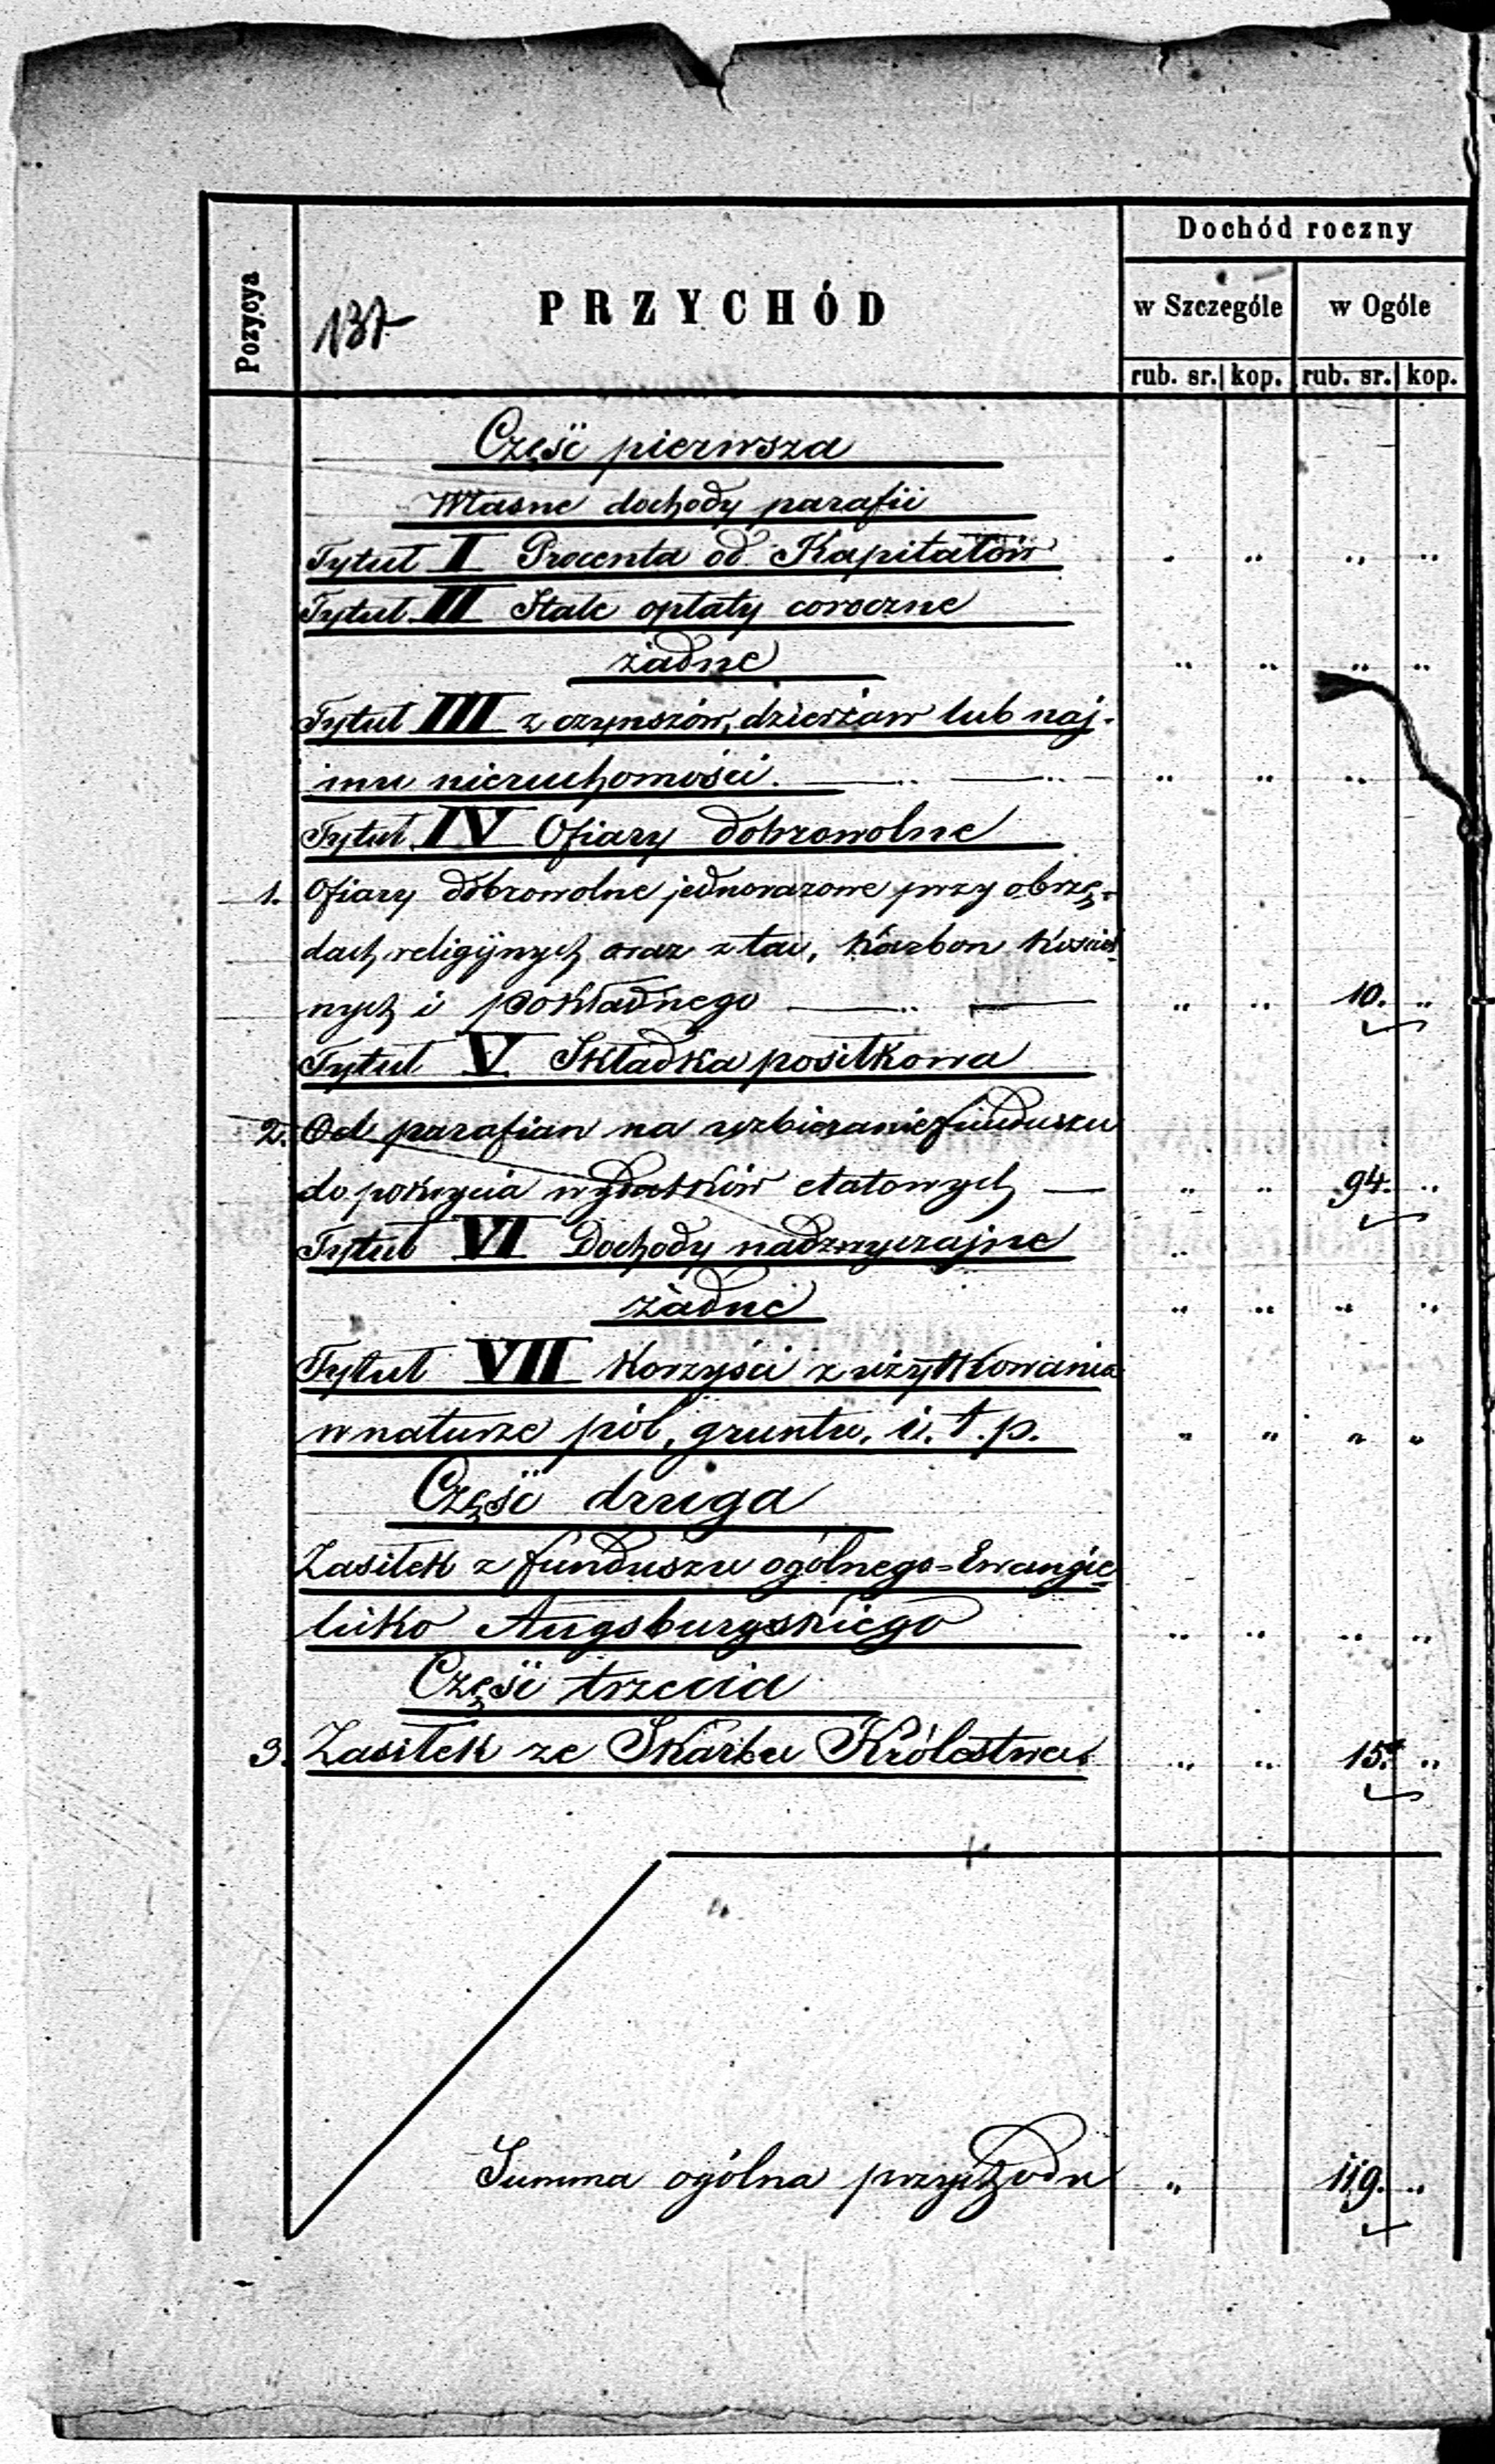 Pozycya
137
PRZYCHÓD
Dochód roczny
w Szczególe w Ogóle
rub. sr. kop. rub. sr. kop.
Część pierwsza
Własne dochody parafii
Tytuł I Procenta od Kapitałów " " " "
Tytuł II Stałe opłaty coroczne
żadne " " " "
Tytuł III z czynszów, dzierżaw lub naj-
mu nieruchomości. — " — " — " " "
Tytuł IV Ofiary dobrowolne
1. Ofiary dobrowolne jednorazowe przy obrzę-
dach religijnych oraz z tac, Karbon Kościel
nych i pokładnego — " — " " 10. "
Tytuł V Składka posiłkowa
2. Od parafian na uzbieranie funduszu
do pokrycia wydatków etatowych — " " 94. "
Tytuł VI Dochody nadzwyczajne "
żadne " " " "
Tytuł VII Korzyści z użytkowania
w naturze pól, gruntu, i. t. p. " " " "
Część druga
Zasiłek z funduszu ogólnego=Ewangie=
licko Augsburgskiego " " " "
Część trzecia
3. Zasiłek ze Skarbu Królestwa. " " 15. "
Summa ogólna przychodu " 119. "